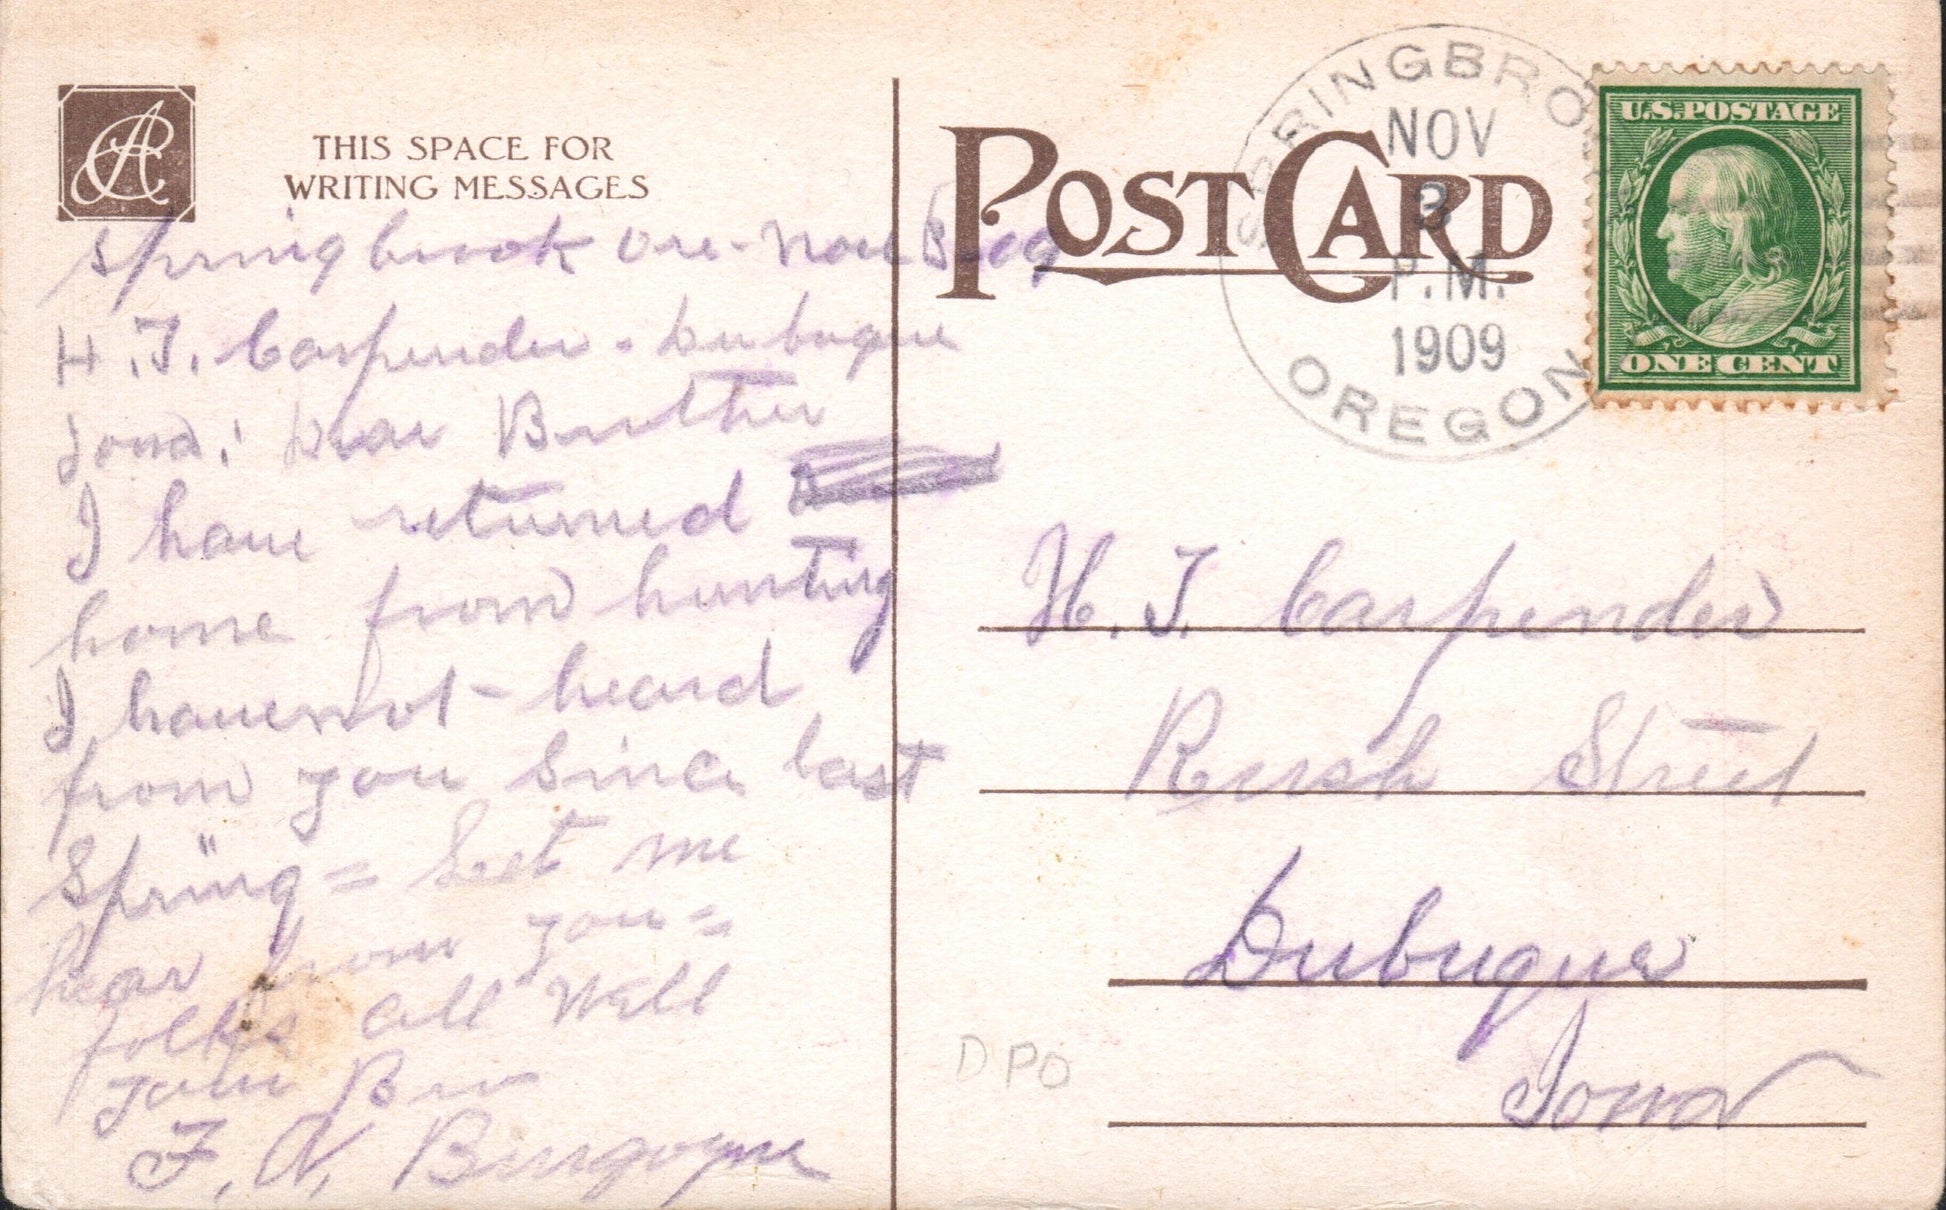 THIS SPACE FOR
WRITING MESSAGES
POST CARD
SPRINGBRO
NOV
3
P.M.
1909
OREGON
U.S. POSTAGE
ONE CENT
Springbrook Ore - Nov 3 09
H. T. Carpender - Dubuque
Iowa: Dear Brother
I have returned
home from hunting
I have not - heard
from you Since last
Spring = Let me
hear from you =
folks all Well
Your Bro
F. N. Burgoyne
H. T. Carpender
Rush Street
Dubuque
Iowa
DPO